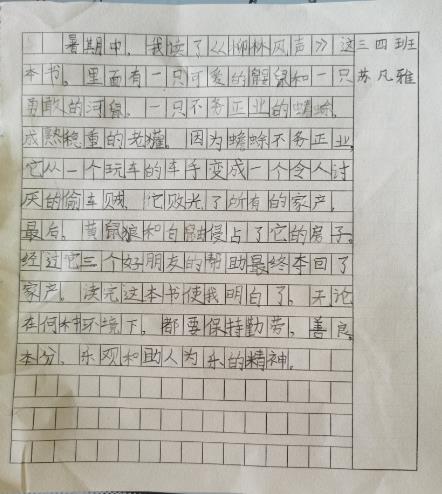 暑期中，我读了《柳林风声》这
三四班
本书。里面有一只可爱的鼹鼠和一只
苏凡雅
勇敢的河鼠，一只不务正业的蟾蜍，
成熟稳重的老獾。因为蟾蜍不务正业，
它从一个玩车的车手变成一个令人讨
厌的偷车贼，它败光了所有的家产，
最后，黄鼠狼和白鼬侵占了它的房子。
经过它三个好朋友的帮助最终夺回了
家产。读完这本书使我明白了，无论
在何种环境下，都要保持勤劳、善良、
本分、乐观和助人为乐的精神。